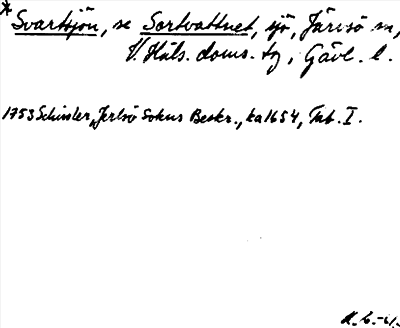 * Svartsjön, se Sortvattnet, sjö, Järvsö sn,
V. Häls. doms. tg, Gävl. l.
1753 Schissler, Jerlsö Sokns Beskr., ka 1654, Tab. I.